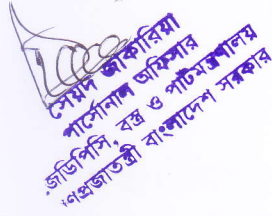 সৈয়দ জাকারিয়া
পার্সোনাল অফিসার
জেডিপিসি, বস্ত্র ও পাটমন্ত্রণালয়
গণপ্রজাতন্ত্রী বাংলাদেশ সরকার